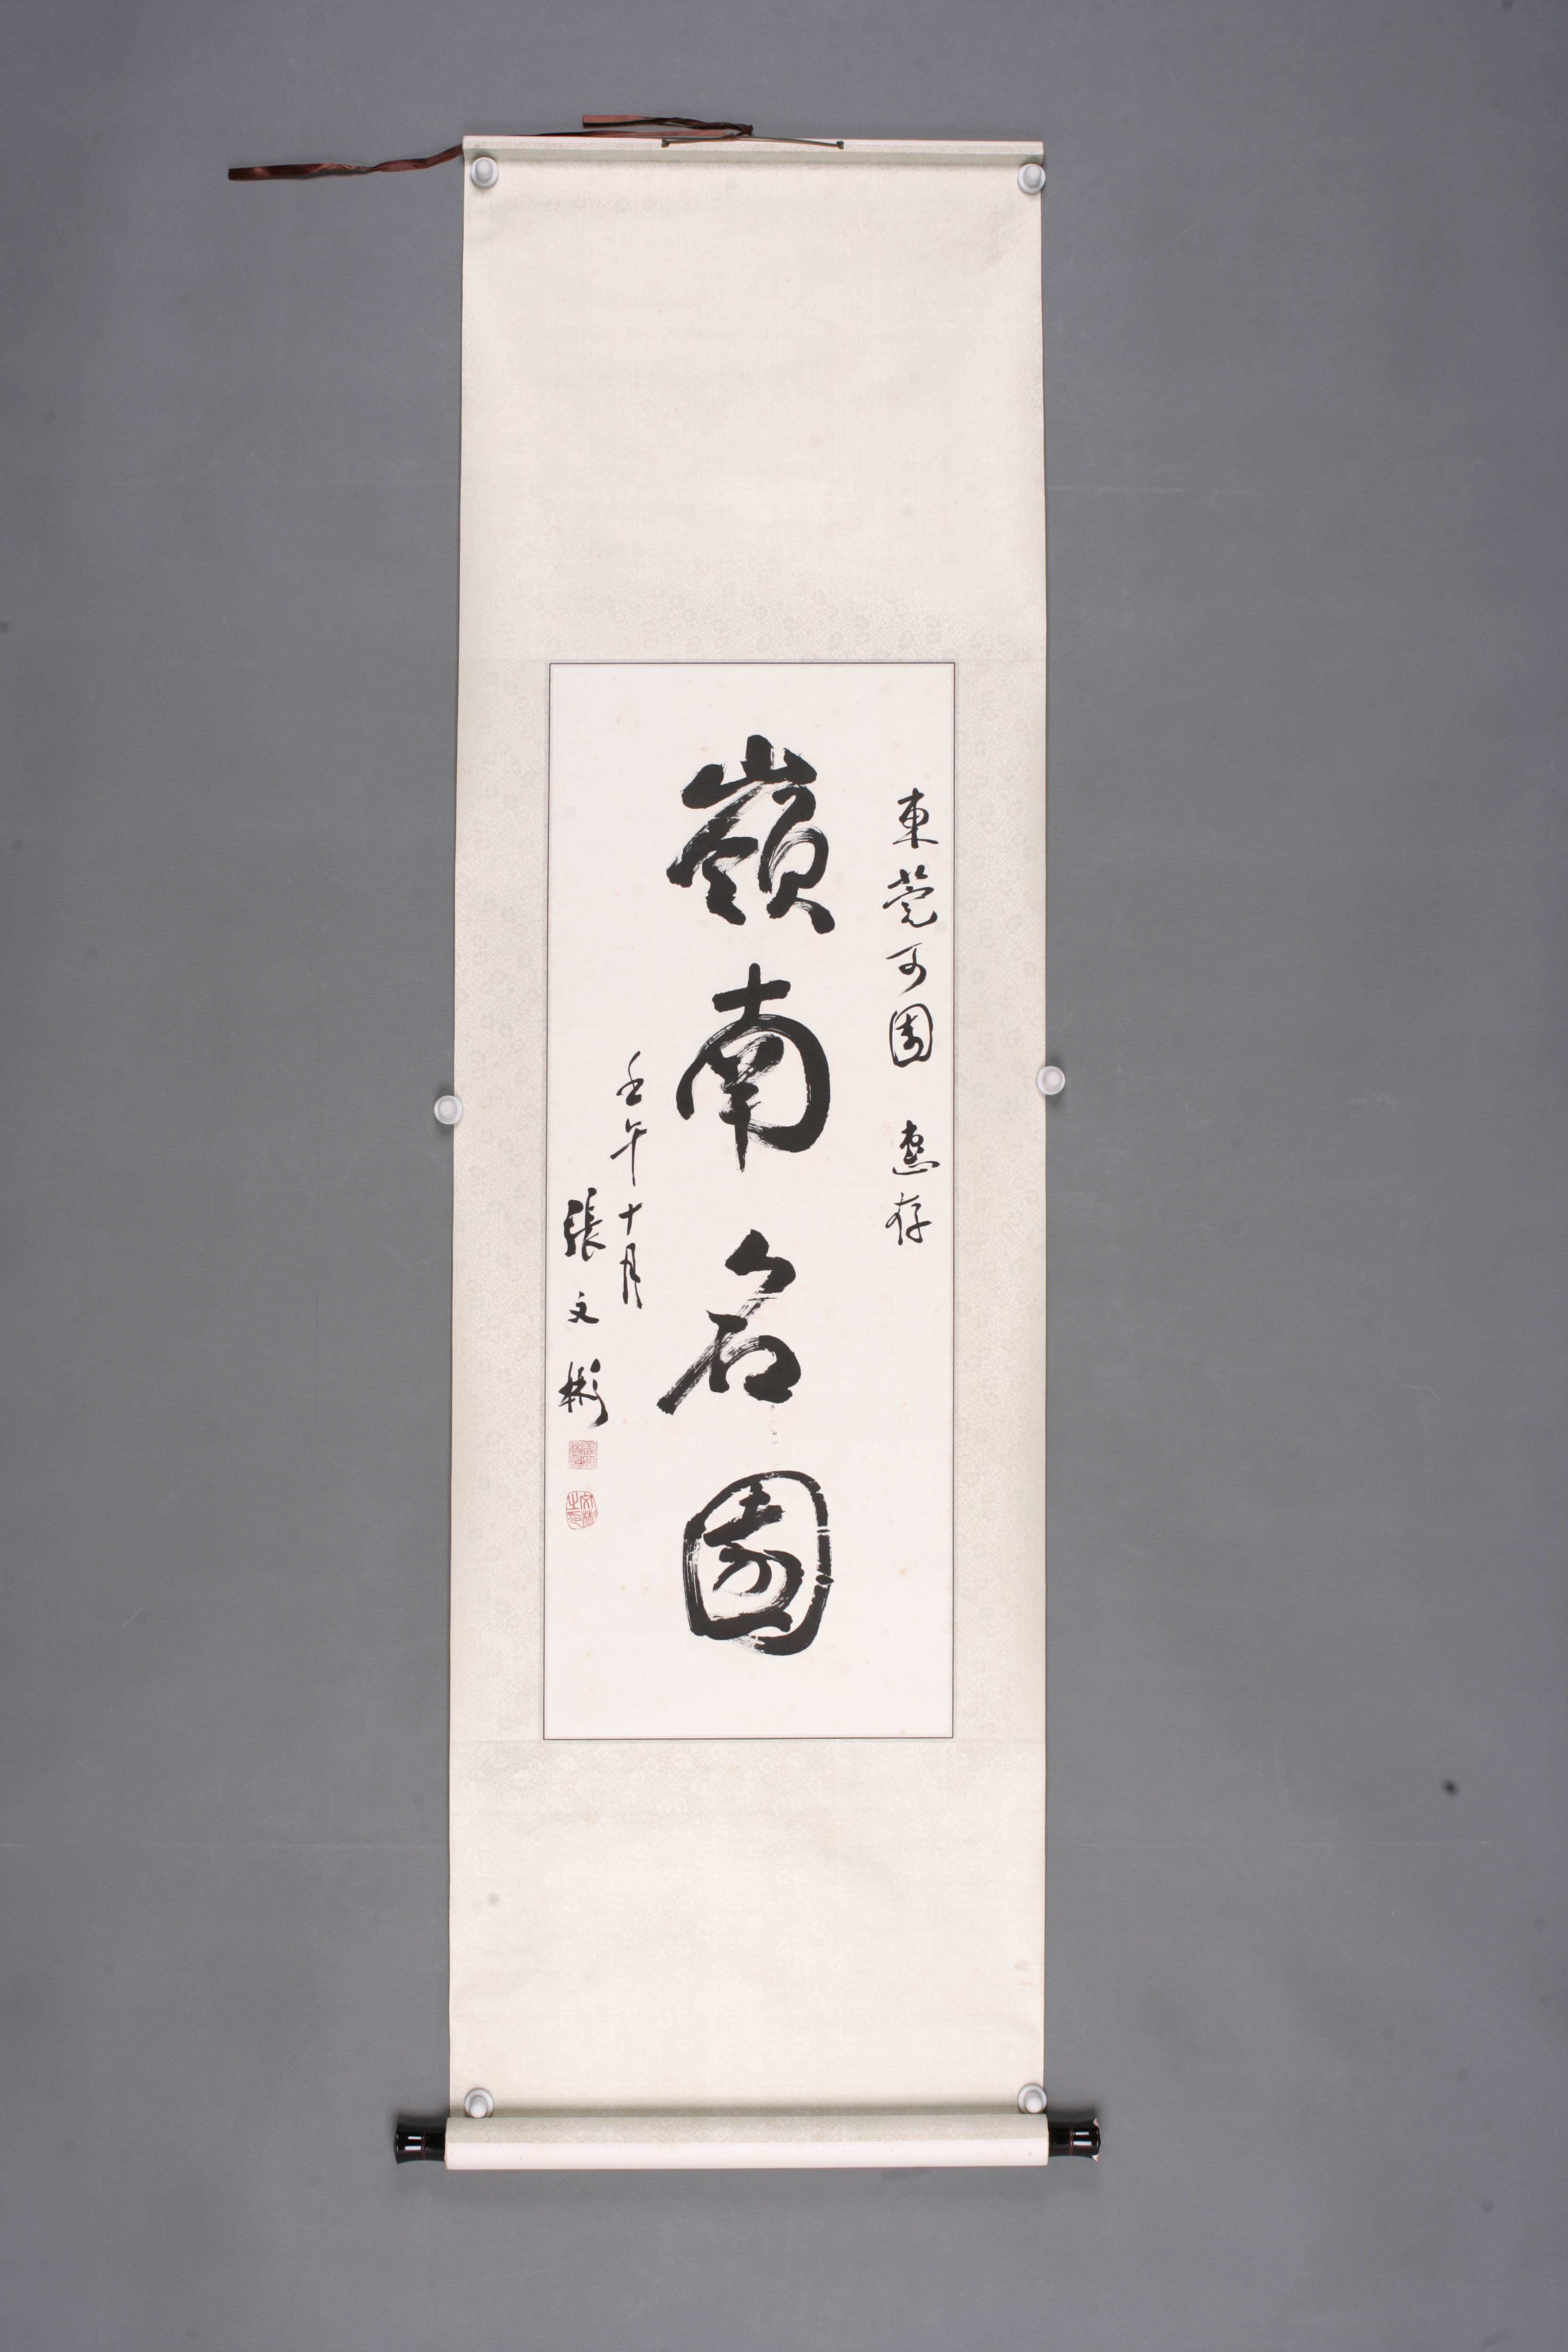 東莞可園 惠存
嶺南名園
壬午十月
張文彬